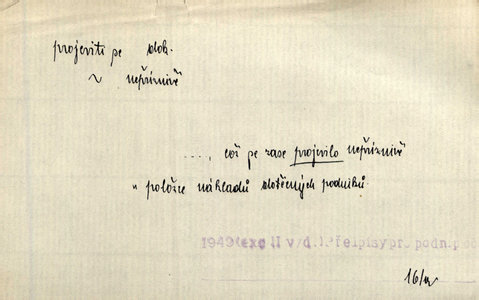 projeviti se dok.
~ nepříznivě
...., což se zase projevilo nepříznivě
v položce nákladů dotčených podniků.
1949(exc.II v/d.)Přelpisy pr. podn.
16/